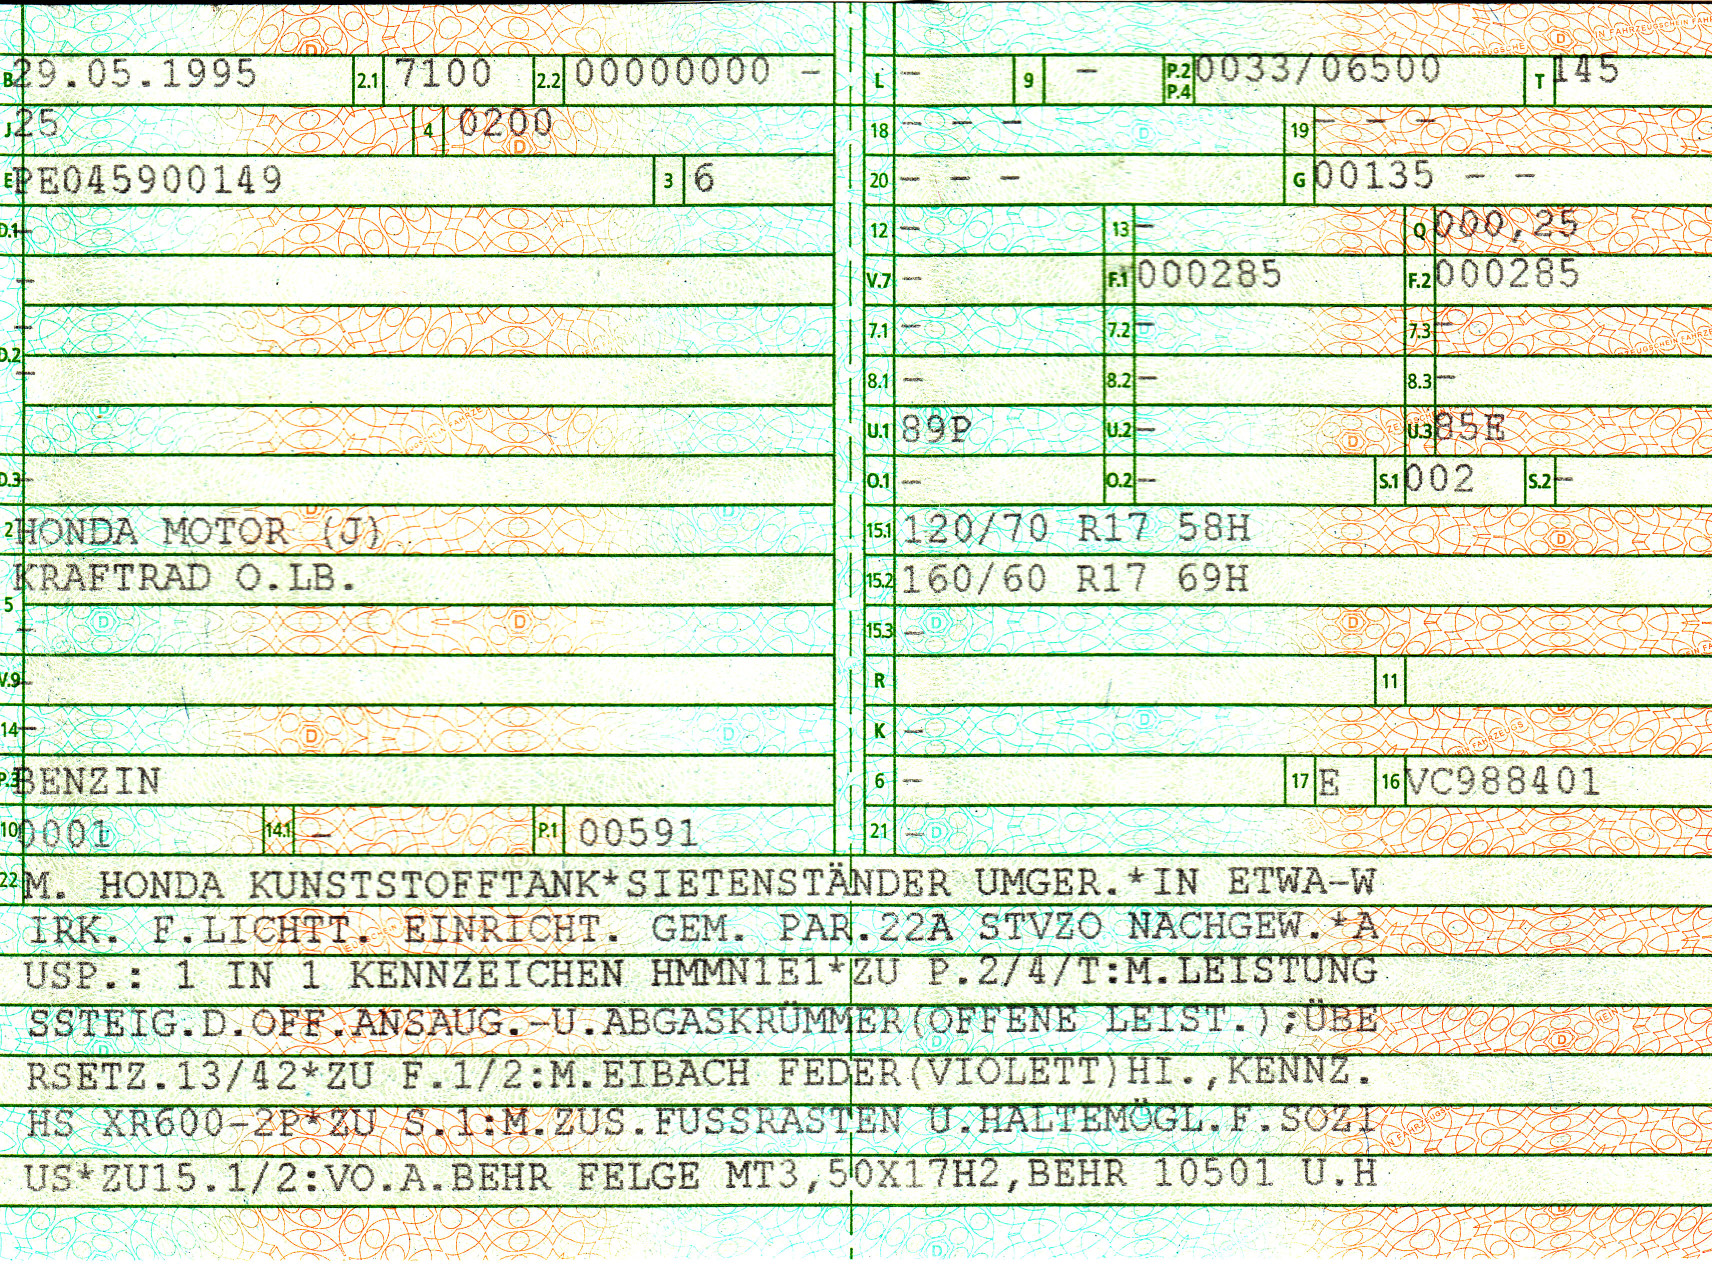 B 29.05.1995 2.1 7100 2.2 00000000 -
J 25 4 0200
E PE045900149 3 6
D.1 -
-
-
D.2
-
D.3 -
2 HONDA MOTOR (J)
KRAFTRAD O.LB.
5
-
V.9 -
14 -
P.3 BENZIN
10 0001 14.1 - P.1 00591
L - 9 - P.2 P.4 0033/06500 T 145
18 - - - 19 - - -
20 - - - G 00135 - -
12 - 13 - Q 000,25
V.7 - F.1 000285 F.2 000285
7.1 - 7.2 - 7.3 -
8.1 - 8.2 - 8.3 -
U.1 89P U.2 - U.3 85E
O.1 - O.2 - S.1 002 S.2 -
15.1 120/70 R17 58H
15.2 160/60 R17 69H
15.3 -
R 11
K -
6 - 17 E 16 VC988401
21 -
22 M. HONDA KUNSTSTOFFTANK*SIETENSTÄNDER UMGER.*IN ETWA-W
IRK. F.LICHTT. EINRICHT. GEM. PAR.22A STVZO NACHGEW.*A
USP.: 1 IN 1 KENNZEICHEN HMMN1E1*ZU P.2/4/T:M.LEISTUNG
SSTEIG.D.OFF.ANSAUG.-U.ABGASKRÜMMER(OFFENE LEIST.);ÜBE
RSETZ.13/42*ZU F.1/2:M.EIBACH FEDER(VIOLETT)HI.,KENNZ.
HS XR600-2P*ZU S.1:M.ZUS.FUSSRASTEN U.HALTEMÖGL.F.SOZI
US*ZU15.1/2:VO.A.BEHR FELGE MT3,50X17H2,BEHR 10501 U.H